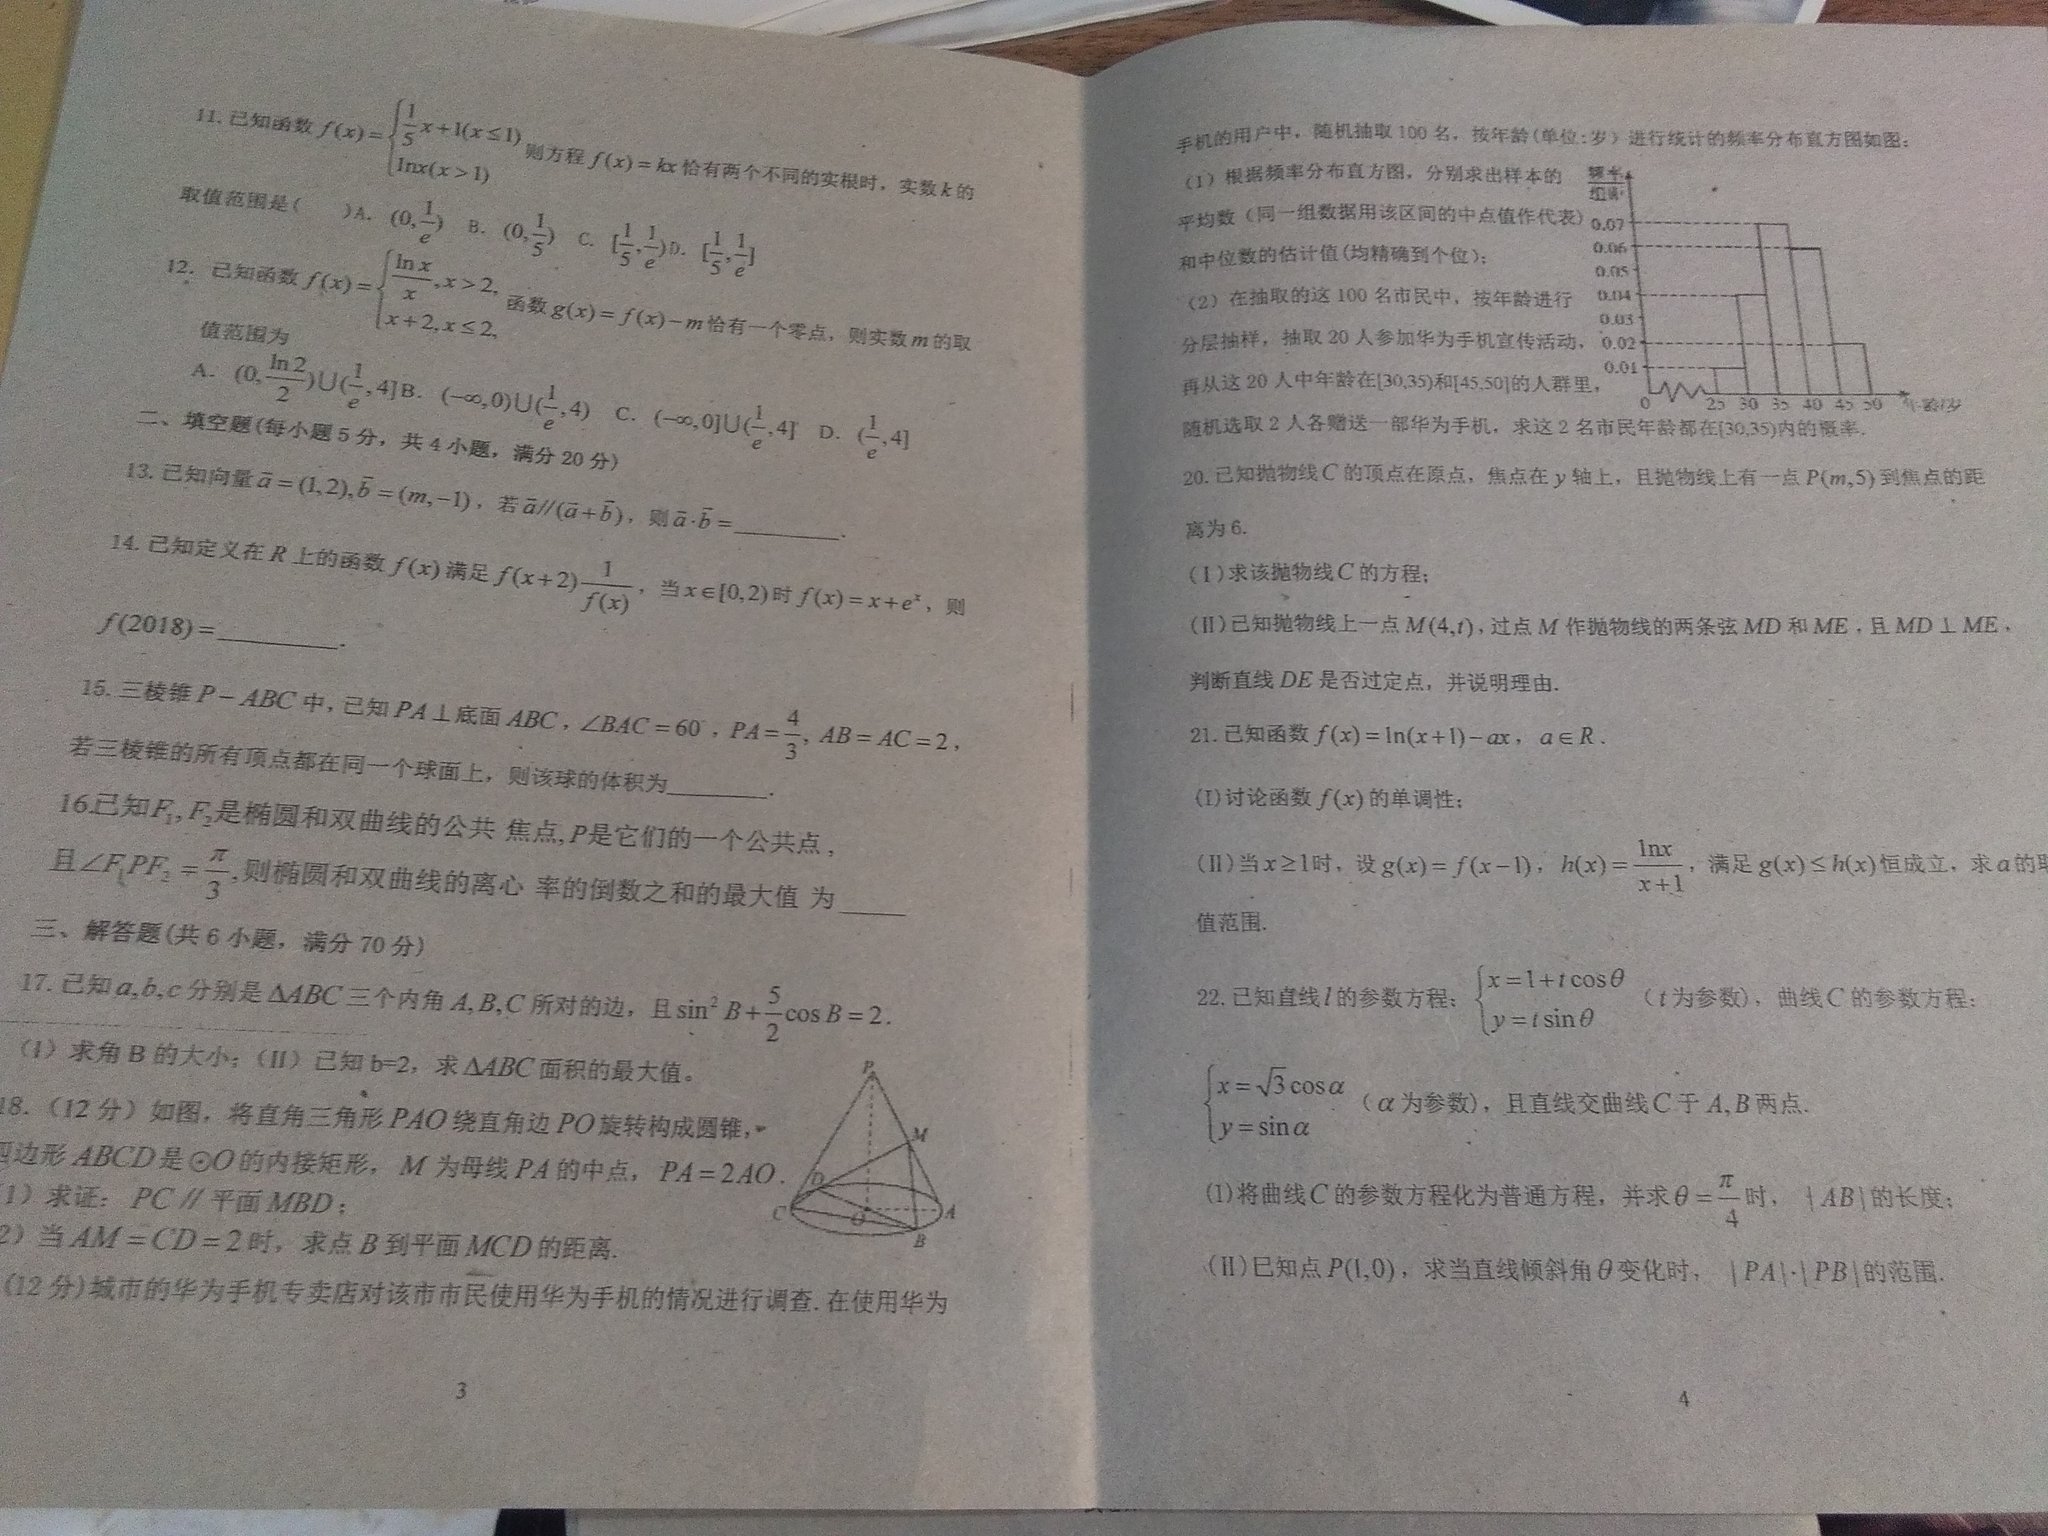 11. 已知函数 f(x)={ 1/5 x+1(x≤1) lnx(x>1) 则方程 f(x)=kx 恰有两个不同的实根时，实数 k 的
取值范围是(　　)A. (0,1/e)　B. (0,1/5)　C. [1/5,1/e) D. [1/5,1/e]
12. 已知函数 f(x)={ lnx/x, x>2, x+2, x≤2, 函数 g(x)=f(x)-m 恰有一个零点，则实数 m 的取
值范围为
A. (0,ln2/2)∪(1/e,4] B. (-∞,0)∪(1/e,4)　C. (-∞,0]∪(1/e,4]　D. (1/e,4]
二、填空题(每小题 5 分，共 4 小题，满分 20 分)
13. 已知向量 a=(1,2), b=(m,-1)，若 a//(a+b)，则 a·b=________.
14. 已知定义在 R 上的函数 f(x) 满足 f(x+2) 1/f(x)，当 x∈[0,2) 时 f(x)=x+e^x，则
f(2018)=________.
15. 三棱锥 P-ABC 中，已知 PA⊥底面 ABC，∠BAC=60°，PA=4/3，AB=AC=2，
若三棱锥的所有顶点都在同一个球面上，则该球的体积为________.
16.已知F₁, F₂是椭圆和双曲线的公共 焦点, P是它们的一个公共点，
且∠F₁PF₂=π/3,则椭圆和双曲线的离心 率的倒数之和的最大值 为____
三、解答题(共 6 小题，满分 70 分)
17. 已知 a,b,c 分别是 ΔABC 三个内角 A,B,C 所对的边，且 sin² B+5/2 cos B=2.
（I）求角 B 的大小；（II）已知 b=2，求 ΔABC 面积的最大值。
18.（12 分）如图，将直角三角形 PAO 绕直角边 PO 旋转构成圆锥，
四边形 ABCD 是 ⊙O 的内接矩形，M 为母线 PA 的中点，PA=2AO.
1）求证：PC // 平面 MBD；
2）当 AM=CD=2 时，求点 B 到平面 MCD 的距离.
P
M
D
C
O
A
B
(12 分)城市的华为手机专卖店对该市市民使用华为手机的情况进行调查. 在使用华为
3
手机的用户中，随机抽取 100 名，按年龄(单位:岁）进行统计的频率分布直方图如图：
（1）根据频率分布直方图，分别求出样本的
平均数（同一组数据用该区间的中点值作代表）
和中位数的估计值(均精确到个位)；
（2）在抽取的这 100 名市民中，按年龄进行
分层抽样，抽取 20 人参加华为手机宣传活动，
再从这 20 人中年龄在[30,35)和[45,50]的人群里，
随机选取 2 人各赠送一部华为手机，求这 2 名市民年龄都在[30,35)内的概率.
频率
组距
0.07
0.06
0.05
0.04
0.03
0.02
0.01
0 25 30 35 40 45 50 年龄/岁
20. 已知抛物线 C 的顶点在原点，焦点在 y 轴上，且抛物线上有一点 P(m,5) 到焦点的距
离为 6.
（I）求该抛物线 C 的方程；
（II）已知抛物线上一点 M(4,t)，过点 M 作抛物线的两条弦 MD 和 ME，且 MD⊥ME，
判断直线 DE 是否过定点，并说明理由.
21. 已知函数 f(x)=ln(x+1)-ax，a∈R.
(I)讨论函数 f(x) 的单调性；
(II)当 x≥1时，设 g(x)=f(x-1)，h(x)=lnx/(x+1)，满足 g(x)≤h(x) 恒成立，求 a 的取
值范围.
22. 已知直线 l 的参数方程：{ x=1+tcosθ y=tsinθ （t 为参数），曲线 C 的参数方程：
{ x=√3cosα y=sinα （α为参数），且直线交曲线 C 于 A,B 两点.
(I)将曲线 C 的参数方程化为普通方程，并求 θ=π/4 时，|AB| 的长度；
(II)已知点 P(1,0)，求当直线倾斜角 θ 变化时，|PA|·|PB| 的范围.
4